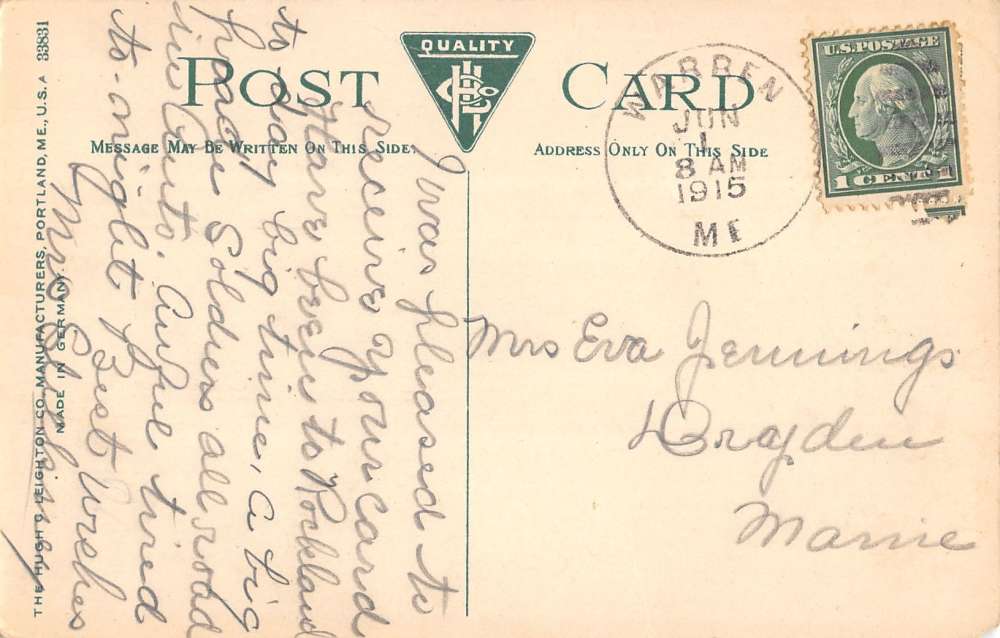 POST CARD
QUALITY
HL Co
MESSAGE MAY BE WRITTEN ON THIS SIDE.
ADDRESS ONLY ON THIS SIDE
WARREN
JUN
1
8 AM
1915
ME
U.S. POSTAGE
1 CENT 1
I was pleased to
receive your card
Have been to Rockland
to day big time, a big
Parade Soldiers all road
in Auto. Awful tired
to-night Best Wishes
Mrs
Mrs Eva Jennings
Dryden
Maine
THE HUGH C. LEIGHTON CO. MANUFACTURERS, PORTLAND, ME., U.S.A 33831
MADE IN GERMANY.